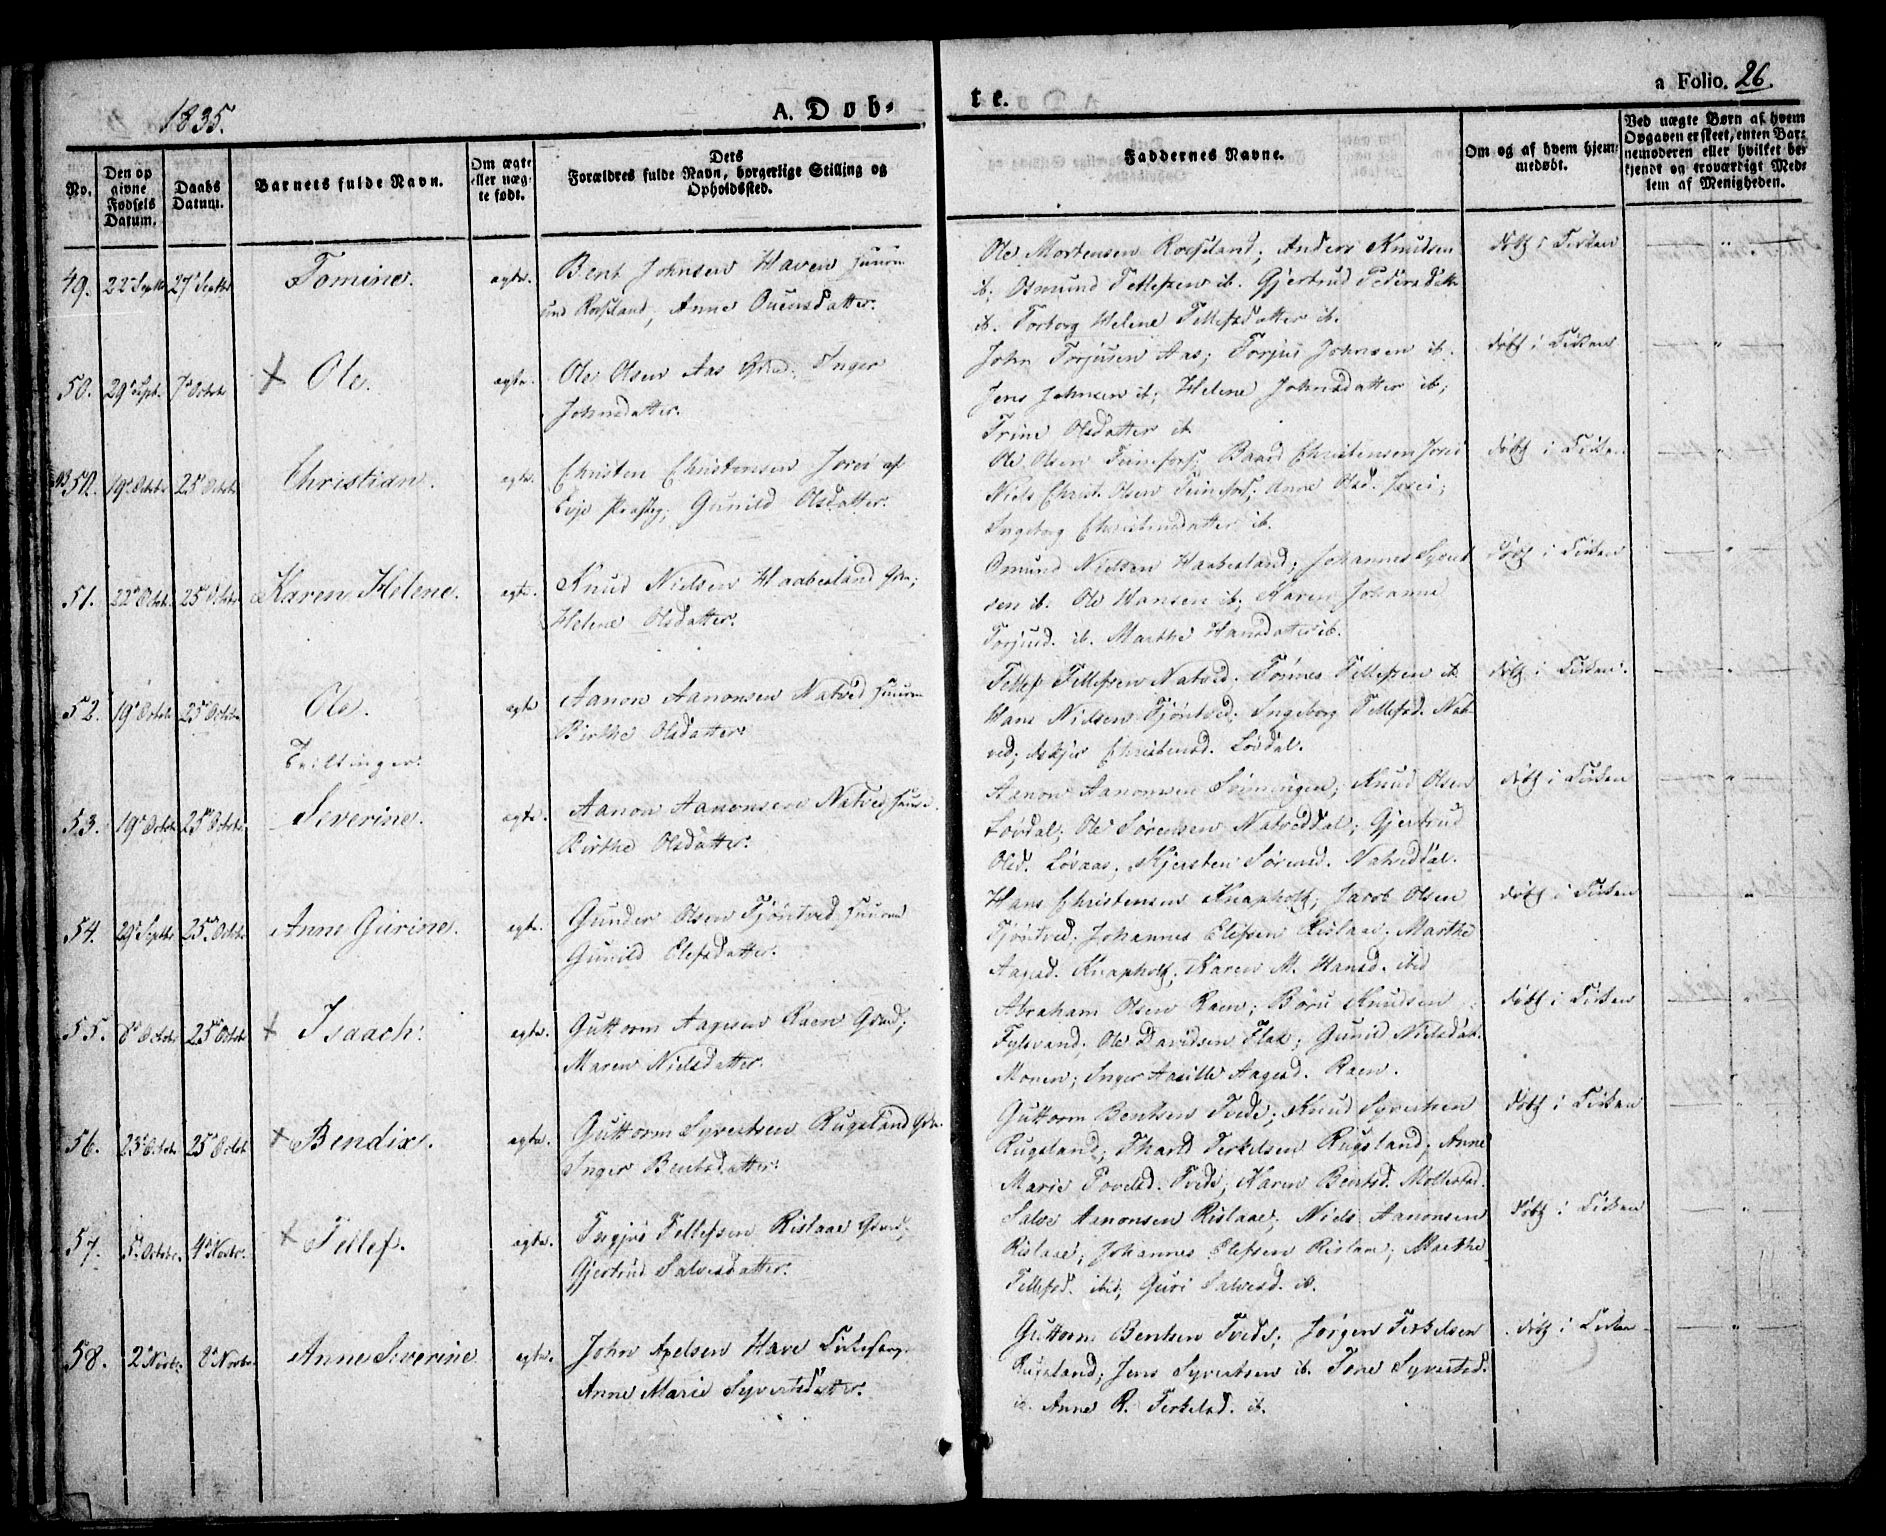 1835.
A. Døb-
te.
a Folio. 26
No.
Den op
givne
Fødsels
Datum.
Daabs
Datum.
Barnets fulde Navn.
Om ægte
eller uæg-
te født.
Dets
Forældres fulde Navn, borgerlige Stilling og
Opholdssted.
Faddernes Navne.
Om og af hvem hjem-
medøbt.
Ved uægte Børn af hvem
Opgaven er skeet, enten Bar-
nemoderen eller hvilket be-
kjendt og troværdigt Med-
lem af Menigheden.
49. 22 Septbr 27 Septbr Tomine. ægte. Bent Johnsen Haven
Rosseland, Anne Ouensdatter.
Ole Mortensen Rosseland; Anders Knudsen
ib. Osmund Tellefsen ib. Gjertrud Pedersdatter
ib. Torborg Helene Tellefsdatter ib.
døbt i Kirken
50. 29 Sept. 7 Octob. Ole. ægte. Ole Olsen Aas Gbd. Inger
Johnsdatter.
John Torjusen Aas; Torjus Johnsen ib.
Jens Johnsen ib; Helene Johnsdatter ib;
Trine Olsdatter ib
døbt i Kirken
50. 19 Octobr 25 Octobr Christian. ægte. Christen Christensen af
Evje Præstg; Gunild Olsdatter.
Ole Olsen Baard Christensen
Niels Christ. Olsen Anne Olsd.
Ingeborg Christensdatter ib.
døbt i Kirken
51. 22 Octob. 25 Octobr Karen Helene. ægte. Knud Nielsen Haabesland Gbr;
Helene Olsdatter.
Osmund Nielsen Haabesland; Johannes
sen ib. Ole Hansen ib; Karen Johanne
Torjusd. ib. Marthe Hansdatter ib.
døbt i Kirken
52. 19 Octob. 25 Octobr Ole. ægte Aanon Aanonsen Natved
Birthe Olsdatter.
Tvillinger.
Tellef Tellefsen Natved. Tønnes Tellefsen ib.
Hans Nielsen Tjöntved; Ingeborg Tellefsd. Nat-
ved; Christensd. Løvdal.
døbt i Kirken
53. 19 Octobr 25 Octobr Severine. ægte. Aanon Aanonsen Natved
Birthe Olsdatter.
Aanon Aanonsen Knud Olsen
Løvdal; Ole Sørensen Natveddal; Gjertrud
Olsd. Løvaas; Kjersten Sørensd. Natveddal.
døbt i Kirken
54. 29 Septbr 25 Octobr Anne Gurine. ægte. Gunder Olsen Tjöntved
Gunild Elefsdatter.
Hans Christensen Knapholt; Jacob Olsen
Tjöntved; Johannes Elefsen Rislaae; Marthe
Aagsd. Knapholt; Karen M. Hansd. ibid
døbt i Kirken
55. 8 Octobr 25 Octobr Isaach. ægte. Guttorm Aagesen Raen Gbd;
Maren Nielsdatter.
Abraham Olsen Raen; Børu Knudsen
Ole Davidsen Flak; Gunild Nielsdat.
Monen; Inger Aasille Aagesd. Raen.
døbt i Kirken
56. 23 Octob. 25 Octob. Bendix. ægte. Guttorm Syvertsen Rugsland Gbr.
Inger Bentsdatter.
Guttorm Bentsen Tvede; Knud Syvertsen
Rugsland; Tharld Terkelsen Rugsland; Anne
Marie Povelsd. Tvede; Karen Bentsd. Mollestad.
døbt i Kirken
57. 5 Octobr. 4 Novbr. Tellef. ægte. Tellefsen Rislaae Gbrd;
Gjertrud Salvesdatter.
Salve Aanonsen Rislaae; Niels Aanonsen
Rislaae; Johannes Elefsen Rislaae; Marthe
Tellefsd. ibid; Guri Salvesd. ib.
døbt i Kirken
58. 2 Novbr. 8 Novbr. Anne Severine ægte. John Axelsen Have
Anne Marie Syvertsdatter.
Guttorm Bentsen Tvede; Jørgen Terkelsen
Rugsland; Jens Syvertsen ib. Tone Syvertsd.
ib. Anne R. Terkelsd. ib.
døbt i Kirken